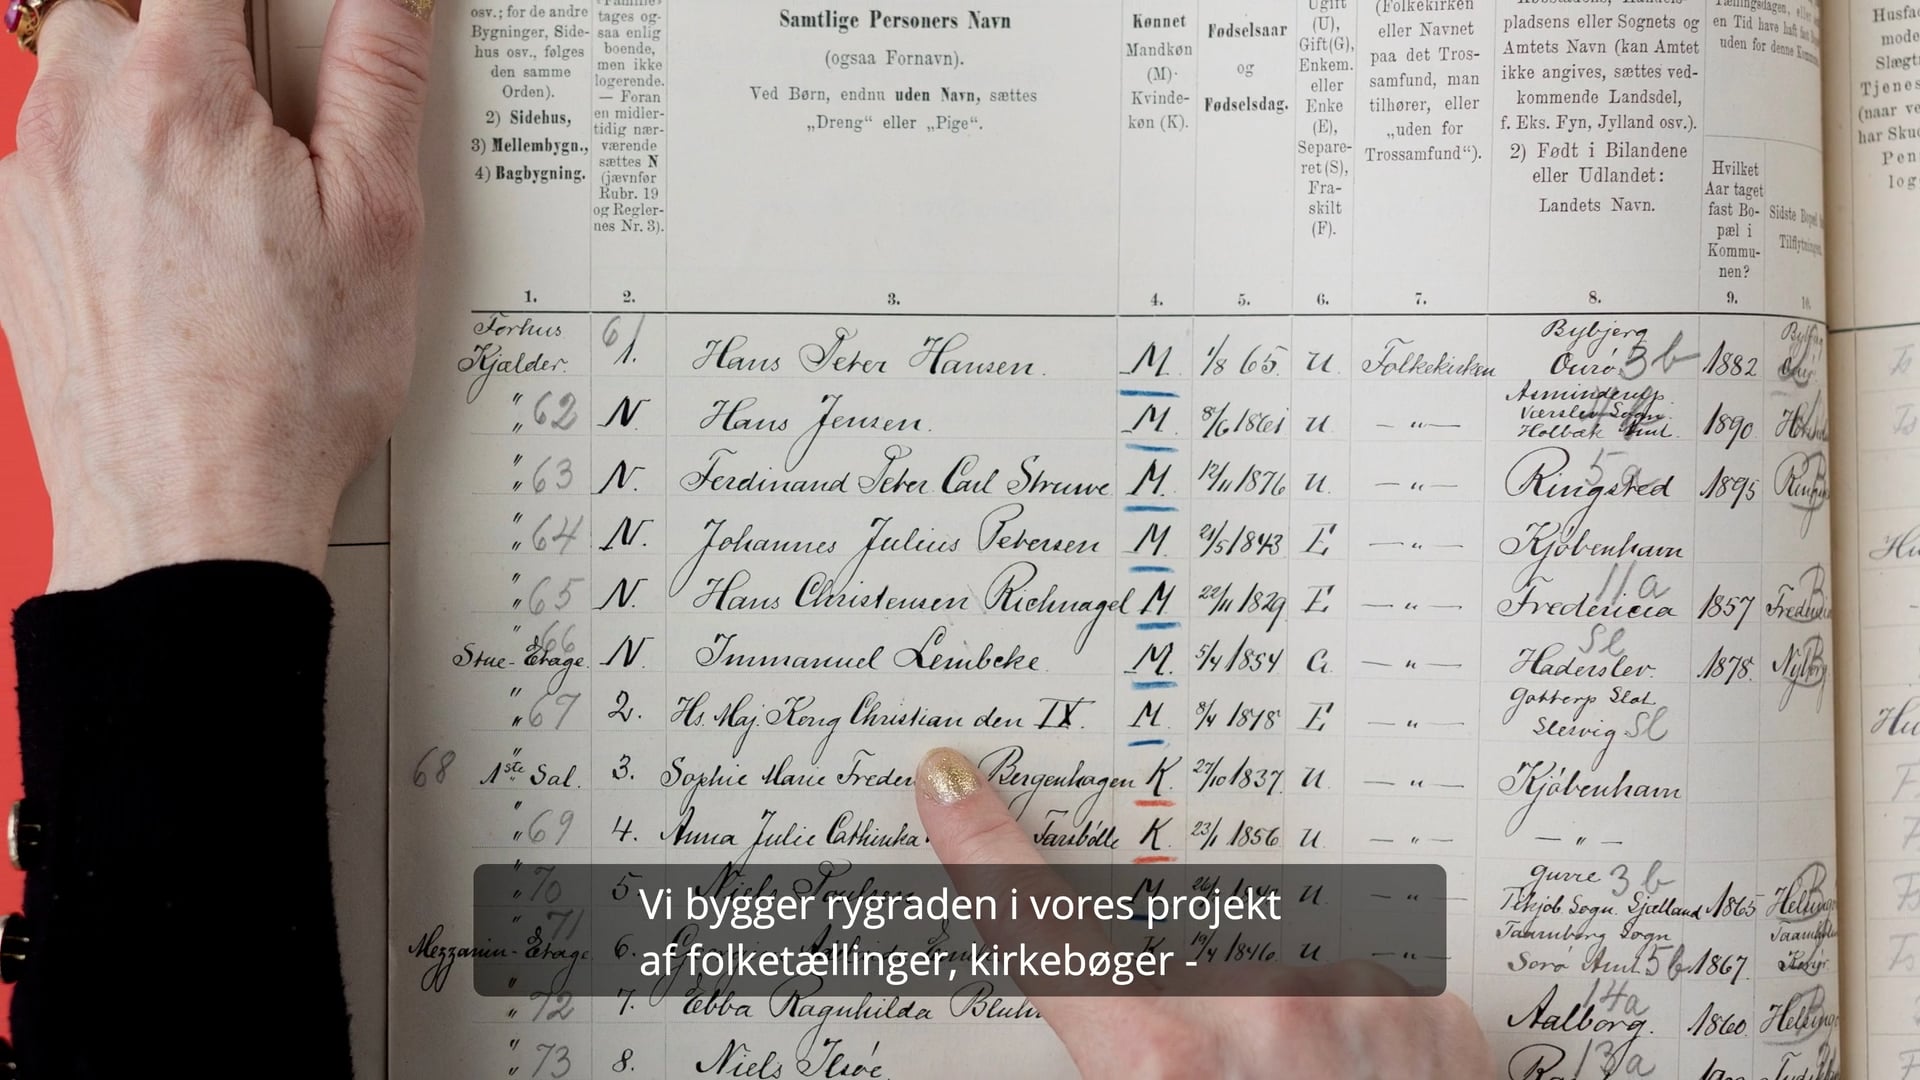 osv.; for de andre
Bygninger, Side-
hus osv., følges
den samme
Orden).
2) Sidehus,
3) Mellembygn.,
4) Bagbygning.
tages og-
saa enlig
boende,
men ikke
logerende.
— Foran
en midler-
tidig nær-
værende
sættes N
(jævnfør
Rubr. 19
og Regler-
nes Nr. 3).
Samtlige Personers Navn
(ogsaa Fornavn).
Ved Børn, endnu uden Navn, sættes
„Dreng“ eller „Pige“.
Kønnet
Mandkøn
(M).
Kvinde-
køn (K).
Fødselsaar
og
Fødselsdag.
Ugift
(U),
Gift(G),
Enkem.
eller
Enke
(E),
Separe-
ret(S),
Fra-
skilt
(F).
(Folkekirken
eller Navnet
paa det Tros-
samfund, man
tilhører, eller
„uden for
Trossamfund“).
pladsens eller Sognets og
Amtets Navn (kan Amtet
ikke angives, sættes ved-
kommende Landsdel,
f. Eks. Fyn, Jylland osv.).
2) Født i Bilandene
eller Udlandet:
Landets Navn.
Hvilket
Aar taget
fast Bo-
pæl i
Kommu-
nen?
1. 2. 3. 4. 5. 6. 7. 8. 9. 10.
Forhus 61 Bybjerg
Kjælder. 1. Hans Peter Hansen. M. 1/8 65. U. Folkekirken Ourø 3b 1882
" 62 N. Hans Jensen. M. 1861 U. — " — Holbæk Amt. 1890
" 63 N. Ferdinand Peter Carl Struwe M. 12/11 1876 U. — " — Ringsted 1895
" 64 N. Johannes Julius Petersen M. 21/5 1843 E — " — Kjøbenhavn
" 65 N. Hans Christensen Richnagel M 22/11 1829 E — " — Fredericia 11a 1857
66
Stue-Etage. N. Immanuel Lembcke. M. 5/4 1854 G. — " — Haderslev. Sl 1878.
" 67 2. Hs. Maj. Kong Christian den IX. M. 8/4 1818 E — " — Gottorp Slot Slesvig Sl
68 1ste Sal. 3. Sophie Marie Bergenhagen K. 27/10 1837. U. Kjøbenhavn
" 69 4. Anna Julie Cathinka Tarsbølle K. 23/1 1856 U. — " — — " —
" 70 5. Niels Poulsen M U. — " — Gurre 3b
Tikjøb Sogn. Sjælland 1865
" 71 Taarnborg Sogn
Mezzanin-Etage 6. K. 19/4 1846. U. — " — Sorø Amt. 5b 1867.
" 72 7. Ebba Ragnhilda Aalborg. 14a 1860.
" 73 8. Niels Ilsøe. 13a
Vi bygger rygraden i vores projekt
af folketællinger, kirkebøger -